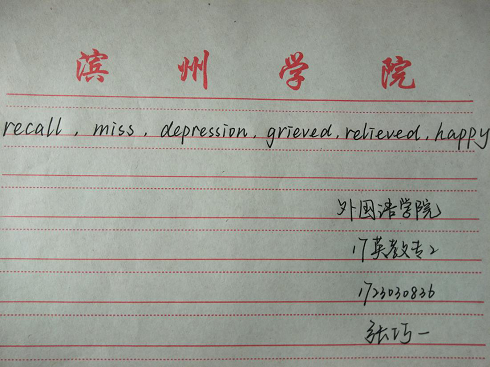 滨州学院
recall, miss, depression, grieved, relieved, happy
外国语学院
17英教专2
1723030836
张巧一